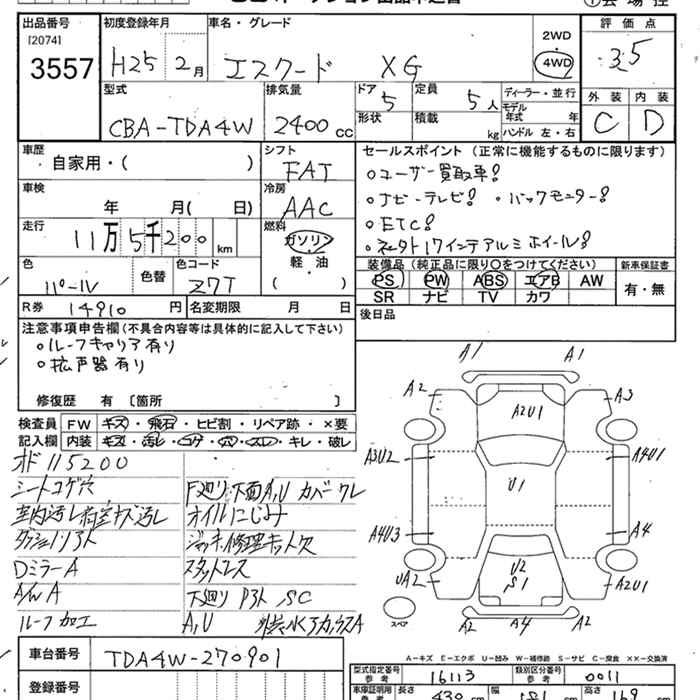 出品番号 初度登録年月 車名・グレード 評価点
[2074]
3557 H25 2月 エスクード XG 2WD 4WD 3.5
型式 排気量 ドア 定員 ディーラー・並行 外装 内装
5 5人 モデル年式 年
CBA-TDA4W 2400cc 形状 積載 kg ハンドル 左・右 C D
車歴 シフト セールスポイント (正常に機能するものに限ります)
自家用・( ) FAT ○ユーザー買取車!
車検 冷房 ○ナビ・テレビ! ・バックモニター!
年 月( 日) AAC ○ETC!
走行 燃料
11万5千200km ガソリン
軽・油
( )
色 色替 色コード 装備品(純正品に限り○をつけてください) 新車保証書
パール Z7T PS PW ABS エアB AW 有・無
SR ナビ TV カワ
R券 14910円 名変期限 月 日 後日品
注意事項申告欄(不具合内容等は具体的に記入して下さい)
○ルーフキャリア有り
○拡声器有り
修復歴 有 [箇所 ]
検査員 FW キズ・飛石・ヒビ割・リペア跡・×要
記入欄 内装 キズ・汚レ・コゲ・穴・スレ・キレ・破レ
A1 A1
A2 A3
A2U1
A3U2 A4U1
U1
A4U3 A4
U2
S1
UA2 A2U1
スペア
A2 A4 A2
115200
シートコゲ穴
ダッシュソフト
DミラーA
A/W A
ルーフ加工
オイルにじみ
ジャッキ修理キット欠
スタットレス
A,U
A-キズ E-エクボ U-凹み W-補修跡 S-サビ C-腐食 XX-交換済
車台番号 TDA4W-270901
登録番号
型式指定番号 参考 16113 類別区分番号 参考 0011
車庫証明用 参考 長さ 430cm 幅 181 高さ 169